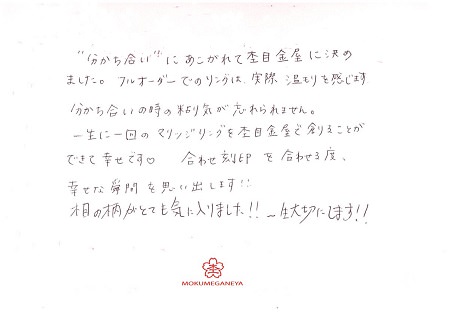 "分かち合い"にあこがれて杢目金屋に決め
ました。フルオーダーでのリングは、実際 温もりを感じます
分かち合いの時の粘り気が忘れられません。
一生に一回のマリッジリングを杢目金屋で創ることが
できて幸せです♡ 合わせ刻印を合わせる度、
幸せな瞬間を思い出します!!
木目の柄がとても気に入りました!! 一生大切にします!!
杢
MOKUMEGANEYA